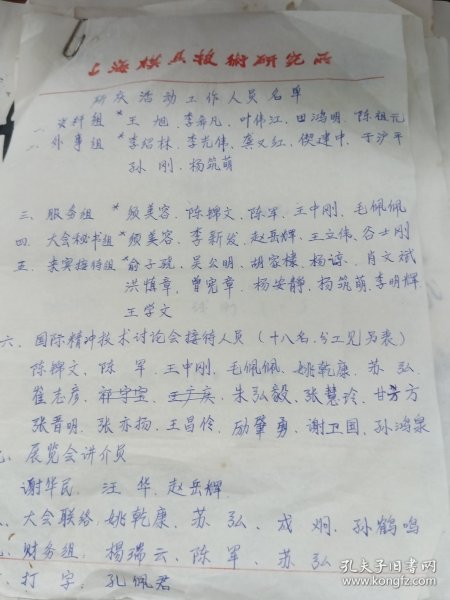 上海模具技術研究所
所庆活动工作人员名单
一、资料组 *王旭、李希凡、叶伟江、田鸿明、陈祖元
二、外事组 *李绍林、李光伟、龚义红、侯建中、于沪平
孙刚、杨筑萌
三、服务组 *颜美容、陈锦文、陈军、王中刚、毛佩佩
四、大会秘书组 *颜美容、李新发、赵岳辉、王立伟、谷士刚
五、来宾接待组 *俞子骁、吴公明、胡家棣、杨谅、肖文斌
洪慎章、曾宪章、杨安静、杨筑萌、李明辉
王学文
六、国际精冲技术讨论会接待人员（十八名、分工见另表）
陈锦文、陈军、王中刚、毛佩佩、姚乾康、苏弘、
崔志彦、祁守宝、朱弘毅、张慧玲、甘芳方
张晋明、张亦扬、王昌伶、励肇勇、谢卫国、孙鸿泉
展览会讲介员
谢华民、汪华、赵岳辉
大会联络 姚乾康、苏弘、戎炯、孙鹤鸣
财务组、杨瑞云、陈军、苏弘
打字、孔佩君
孔夫子旧书网
book.kongfz.com